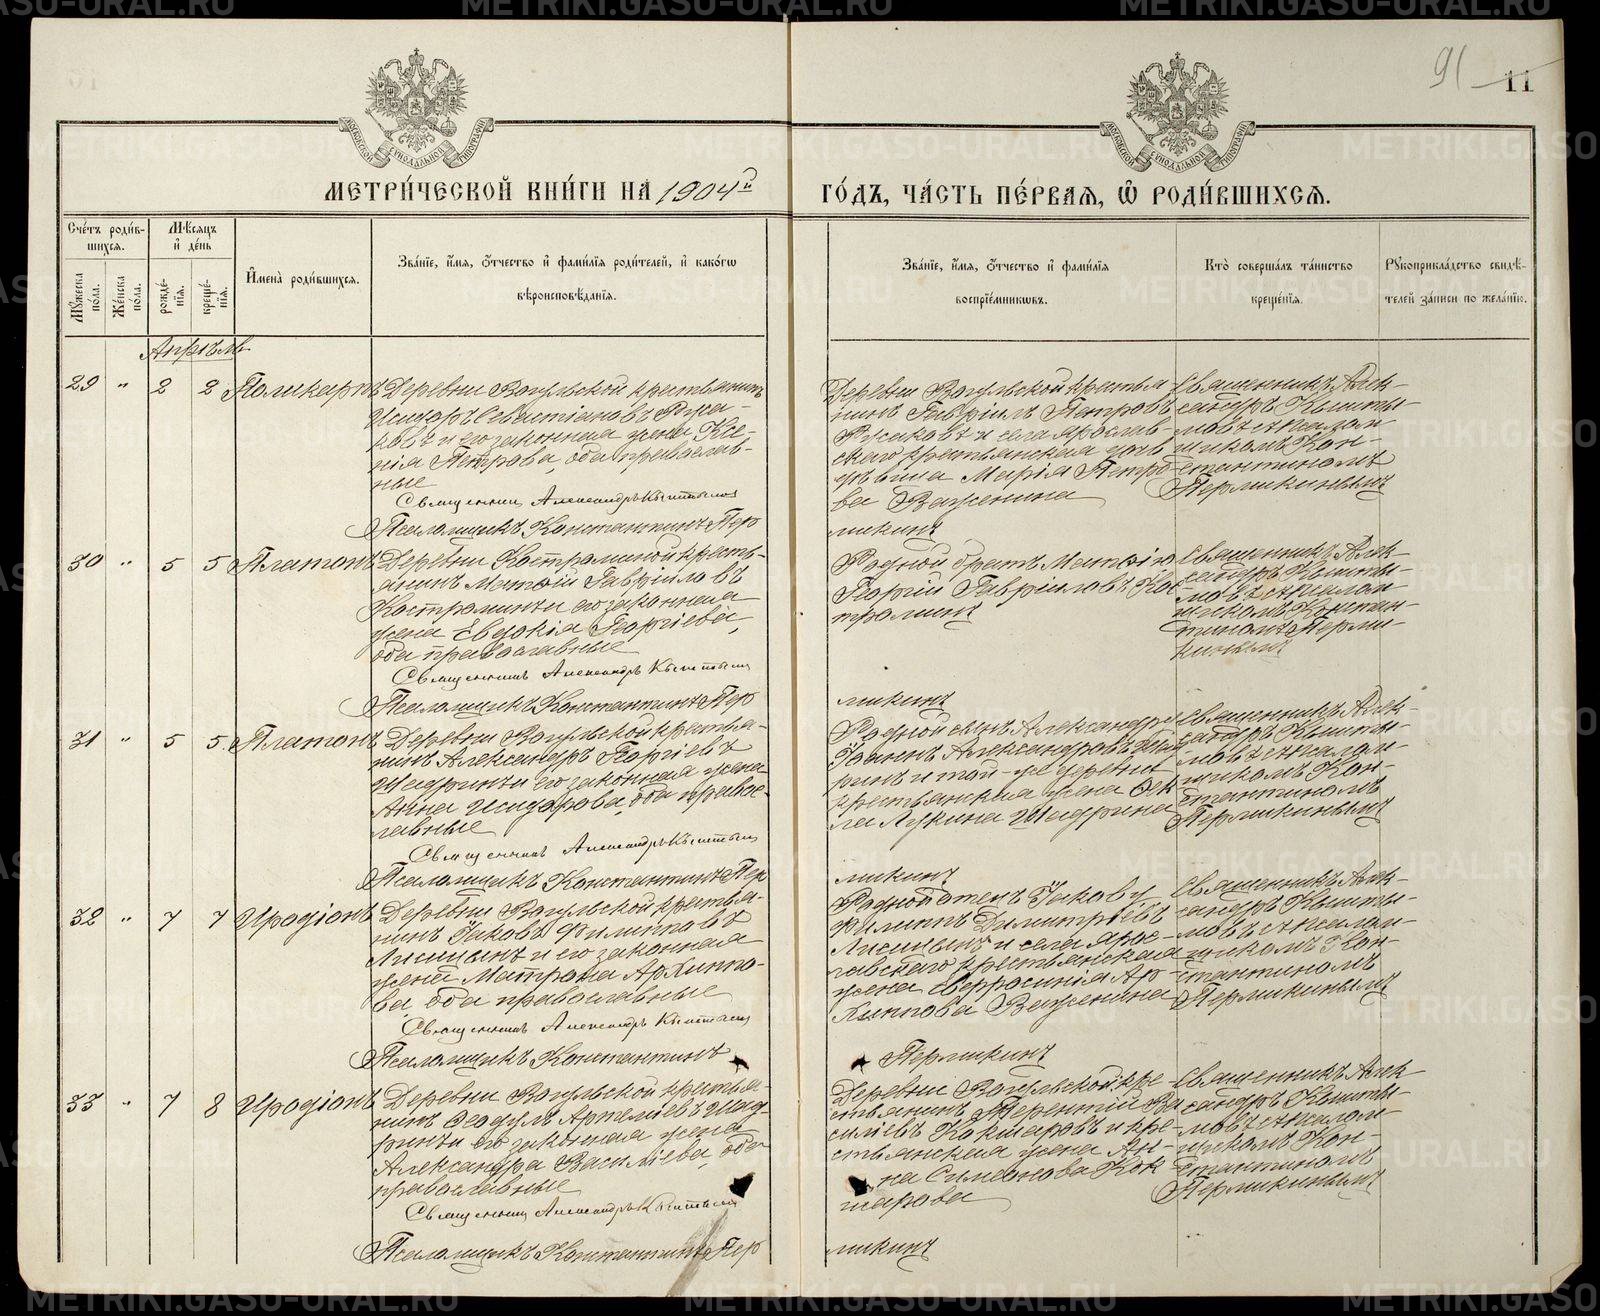 91 11
МЕТРИЧЕСКОЙ КНИГИ НА 1904й ГОДЪ, ЧАСТЬ ПЕРВАЯ, Ѽ РОДИВШИХСЯ.
Счетъ родив-
шихся.
Мѣсяцъ
и день
Мужеска пола.
Женска пола.
рожденія.
крещенія.
Имена родившихся.
Званіе, имя, отчество и фамилія родителей, и какогѡ
вѣроисповѣданія.
Званіе, имя, отчество и фамилія
воспріемникѡвъ.
Кто совершалъ таинство
крещенія.
Рукоприкладство свидѣ-
телей записи по желанію.
Апрѣль
29 " 2 2 Поликарпъ
Деревни Вогульской крестьянинъ
Исидоръ Севастіановъ Руса-
ковъ и его законная жена Ксе-
нія Петрова, оба православ-
ные
Священникъ Александръ Кыштымовъ
Псаломщикъ Константинъ Пер
Деревни Вогульской крестья
нинъ Гавріилъ Петровъ
Русаковъ и села Ярослав-
скаго крестьянская дочь
дѣвица Марія Петро
ва Важенина
микинъ
Священникъ Алек-
сандръ Кышты-
мовъ съ псалом
щикомъ Кон-
стантиномъ
Пермикинымъ
30 " 5 5 Платонъ
Деревни Костроминой кресть-
янинъ Матѳій Гавріиловъ
Костроминъ и его законная
жена Евдокія Георгіева,
оба православные
Священникъ Александръ Кыштымов
Псаломщикъ Константинъ Пер
Родной братъ Матѳію
Георгій Гавріиловъ Кос
троминъ
микинъ
Священникъ Алек-
сандръ Кышты-
мовъ съ псалом
щикомъ Констан-
тиномъ Перми-
кинымъ
31 " 5 5 Платонъ
Деревни Вогульской крестья-
нинъ Александръ Георгіевъ
Шадринъ и его законная жена
Анна Исидорова, оба право-
славные
Священникъ Александръ Кыштымов
Псаломщикъ Константинъ Пер
Родной сынъ Александру
Іоаннъ Александровъ Шад
ринъ и той-же деревни
крестьянская жена Ѳек
ла Лукина Шадрина
микинъ
Священникъ Алек-
сандръ Кышты-
мовъ съ псалом-
щикомъ Кон-
стантиномъ
Пермикинымъ
32 " 7 7 Иродіонъ
Деревни Вогульской крестья-
нинъ Іаковъ Филипповъ
Лисицынъ и его законная
жена Матрона Архиппо-
ва оба православные
Священникъ Александръ Кыштымов
Псаломщикъ Константинъ
Родной отецъ Іакову
Филиппъ Димитріевъ
Лисицынъ и села Ярос-
лавскаго крестьянская
жена Евфросинія Ар-
хиппова Важенина
Пермикинъ
Священникъ Алек-
сандръ Кышты-
мовъ съ псалом-
щикомъ Кон-
стантиномъ
Пермикинымъ
33 " 7 8 Иродіонъ
Деревни Вогульской крестья-
нинъ Ѳеодулъ Артеміевъ Шад-
ринъ и его законная жена
Александра Василіева, оба
православные
Священникъ Александръ Кыштымов
Псаломщикъ Константинъ Пер
Деревни Вогульской кре
стьянинъ Терентій Ва
силіевъ Кокшаровъ и кре-
стьянская жена Ан-
на Симеонова Кок
шарова
микинъ
Священникъ Алек
сандръ Кышты-
мовъ съ псалом-
щикомъ Кон-
стантиномъ
Пермикинымъ
METRIKI.GASO-URAL.RU